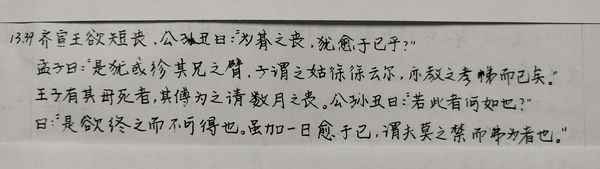 13.39 齐宣王欲短丧，公孙丑曰："为朞之丧，犹愈于已乎？"
孟子曰："是犹或紾其兄之臂，子谓之姑徐徐云尔，亦教之孝悌而已矣。"
王子有其母死者，其傅为之请数月之丧。公孙丑曰："若此者何如也？"
曰："是欲终之而不可得也。虽加一日愈于已，谓夫莫之禁而弗为者也。"